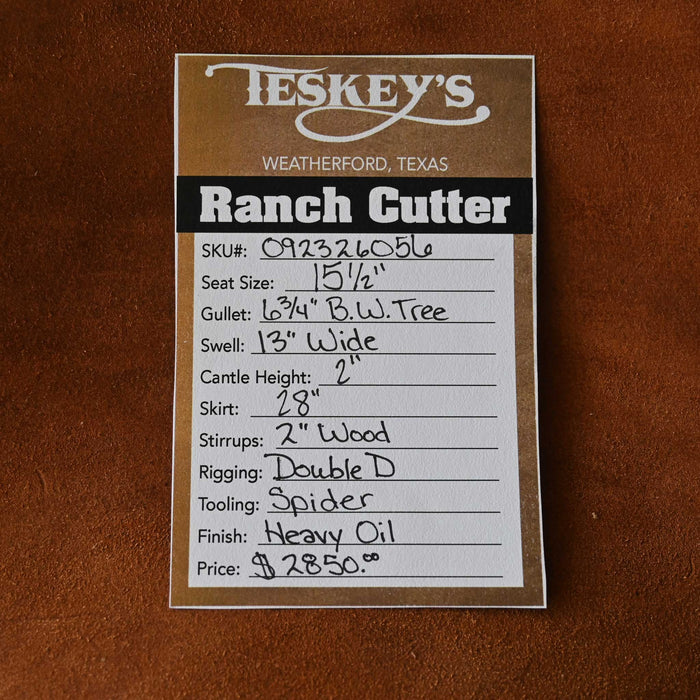 TESKEY'S
WEATHERFORD, TEXAS
Ranch Cutter
SKU#: 092326056
Seat Size: 15 1/2"
Gullet: 6 3/4" B.W. Tree
Swell: 13" Wide
Cantle Height: 2"
Skirt: 28"
Stirrups: 2" Wood
Rigging: Double D
Tooling: Spider
Finish: Heavy Oil
Price: $ 2850.00